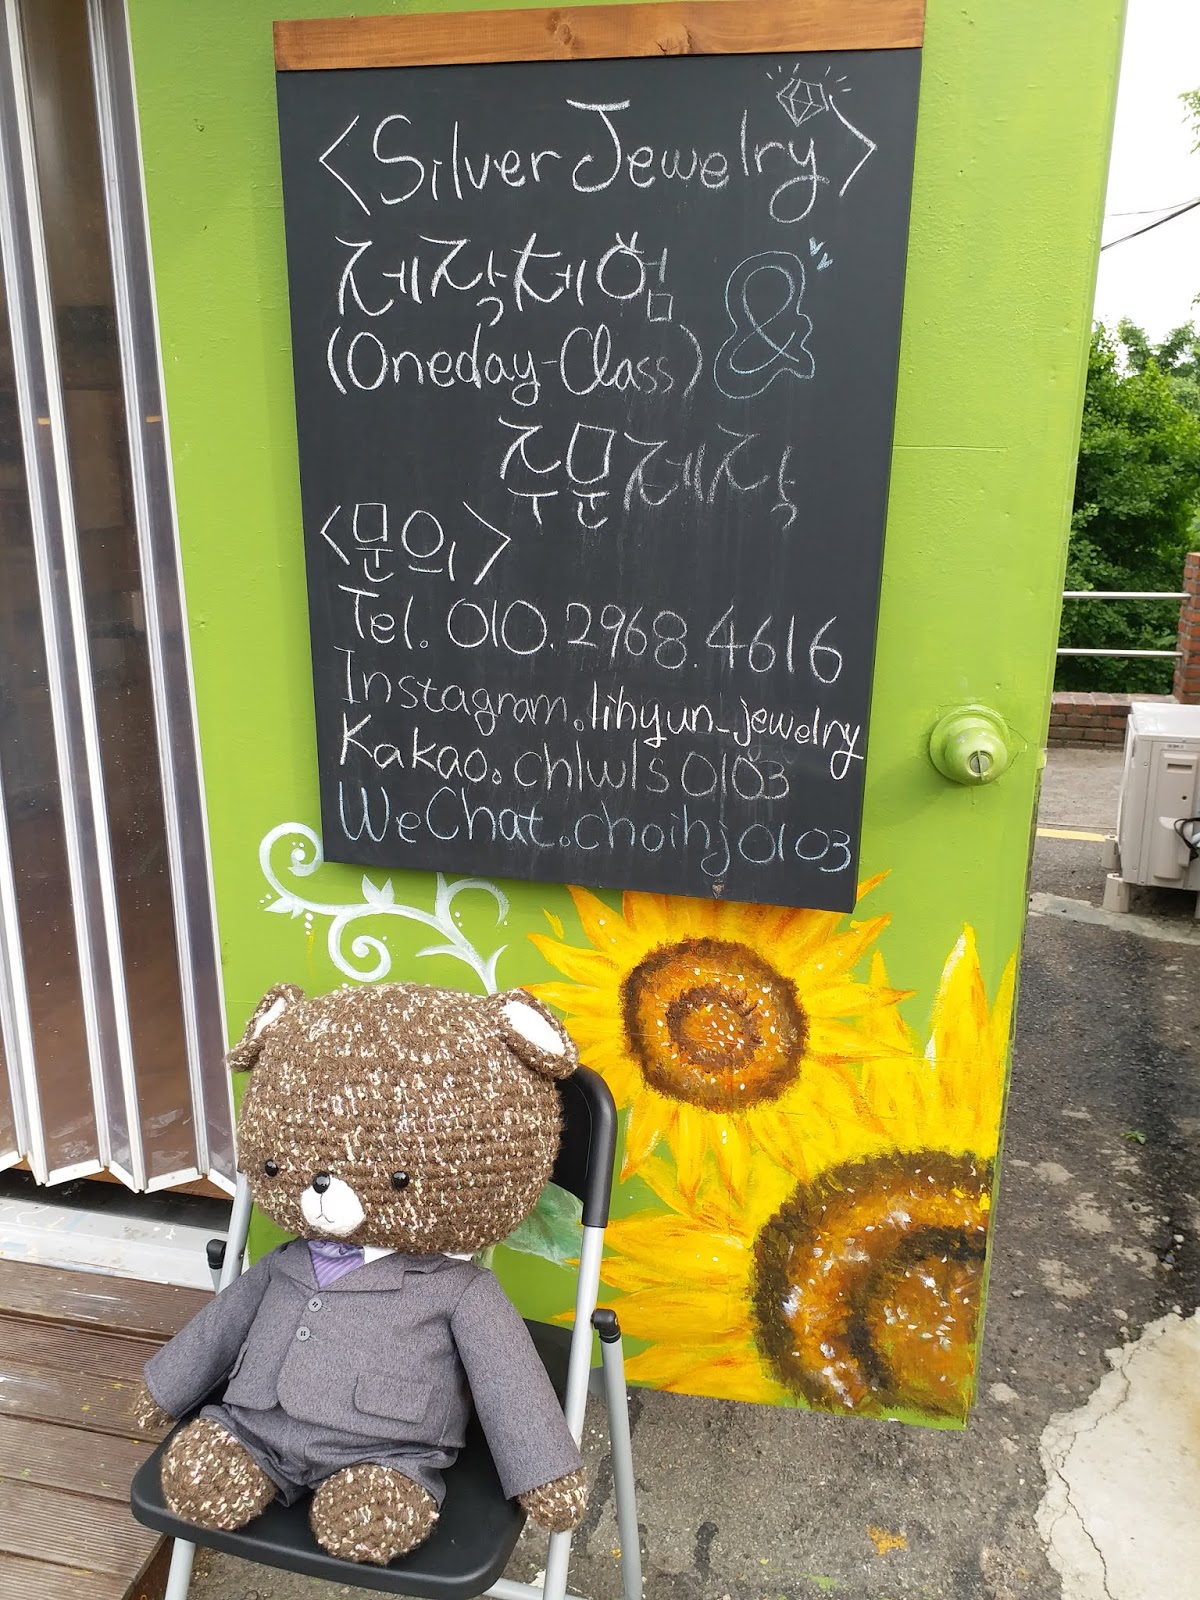 <Silver Jewelry>
제작체험 &
(Oneday-Class)
주문제작
<문의>
Tel. 010.2968.4616
Instagram.lihyun_jewelry
Kakao.chlwls0103
WeChat.choihj0103